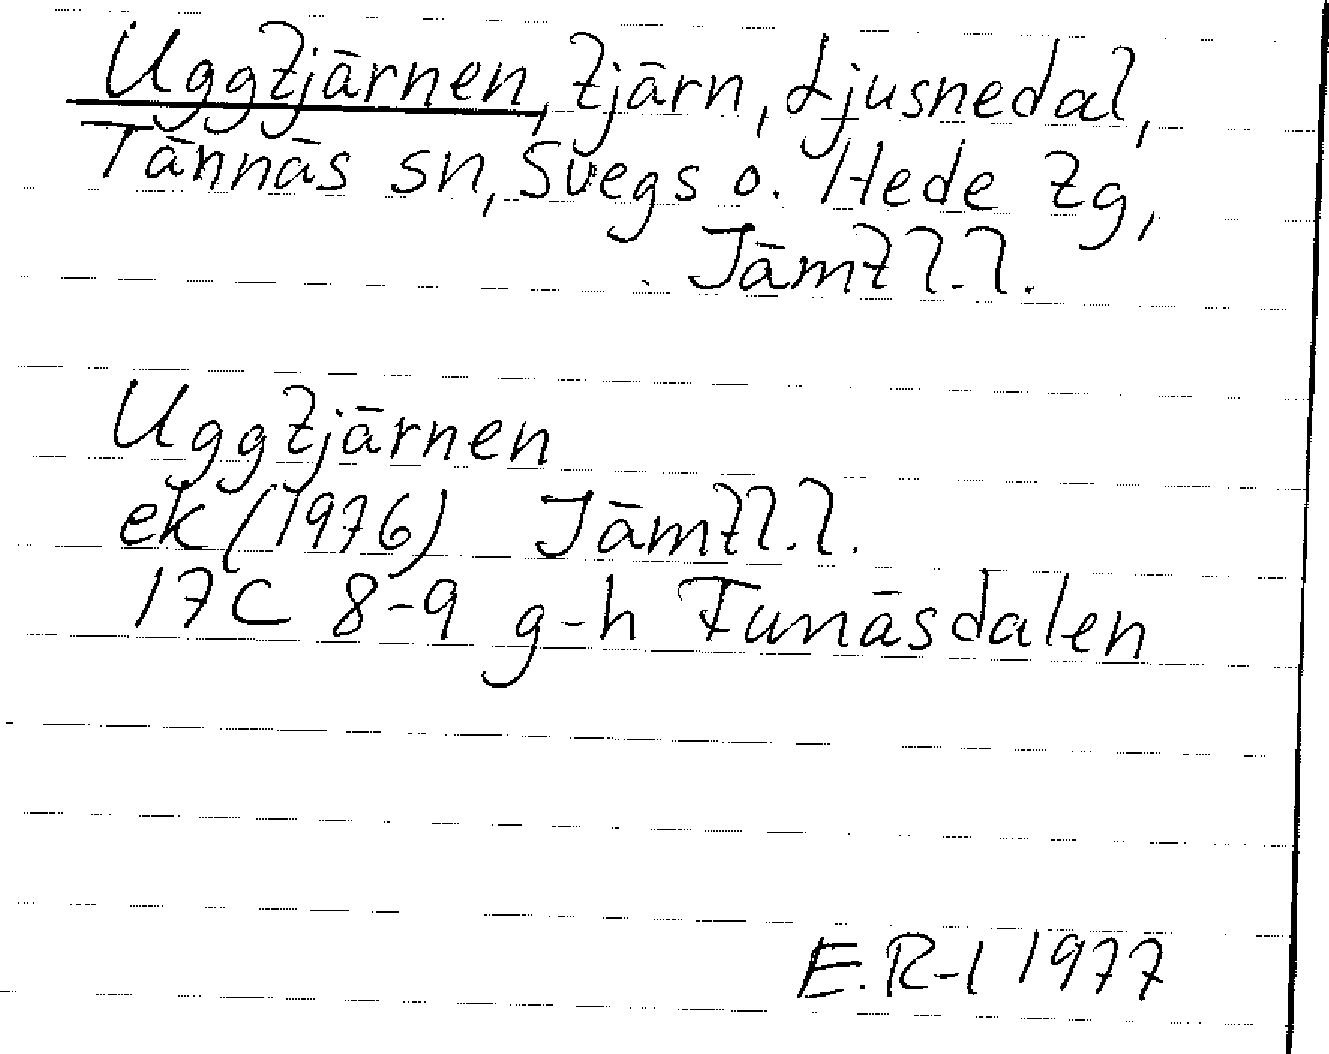 Uggtjärnen, tjärn, Ljusnedal,
Tännäs sn, Svegs o. Hede tg,
Jämtl.l.
Uggtjärnen
ek (1976) Jämtl.l.
17C 8-9 g-h Funäsdalen
E.R-l 1977